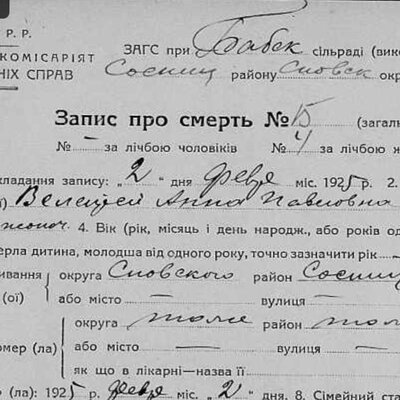 Р. Р.
КОМІСАРІЯТ
НІХ СПРАВ
ЗАГС при Бабск сільраді (вик
Сосниц району Сновск ок
Запис про смерть № 15 (загаль
№ — за лічбою чоловіків № 4 за лічбою ж
кладання запису: „ 2 " дня февр міс. 1925 р. 2.
і) Велецкей Анна Павловна
4. Вік (рік, місяць і день народж., або років од
ерла дитина, молодша від одного року, точно зазначити рік —
ивання округа Сновского район Сосниц
(ої) або місто — вулиця —
округа тоже район то
омер (ла) або місто — вулиця —
як що в лікарні—назва її
р (ла): 1925 р. февр міс. „ 2 " дня. 8. Сімейний ста